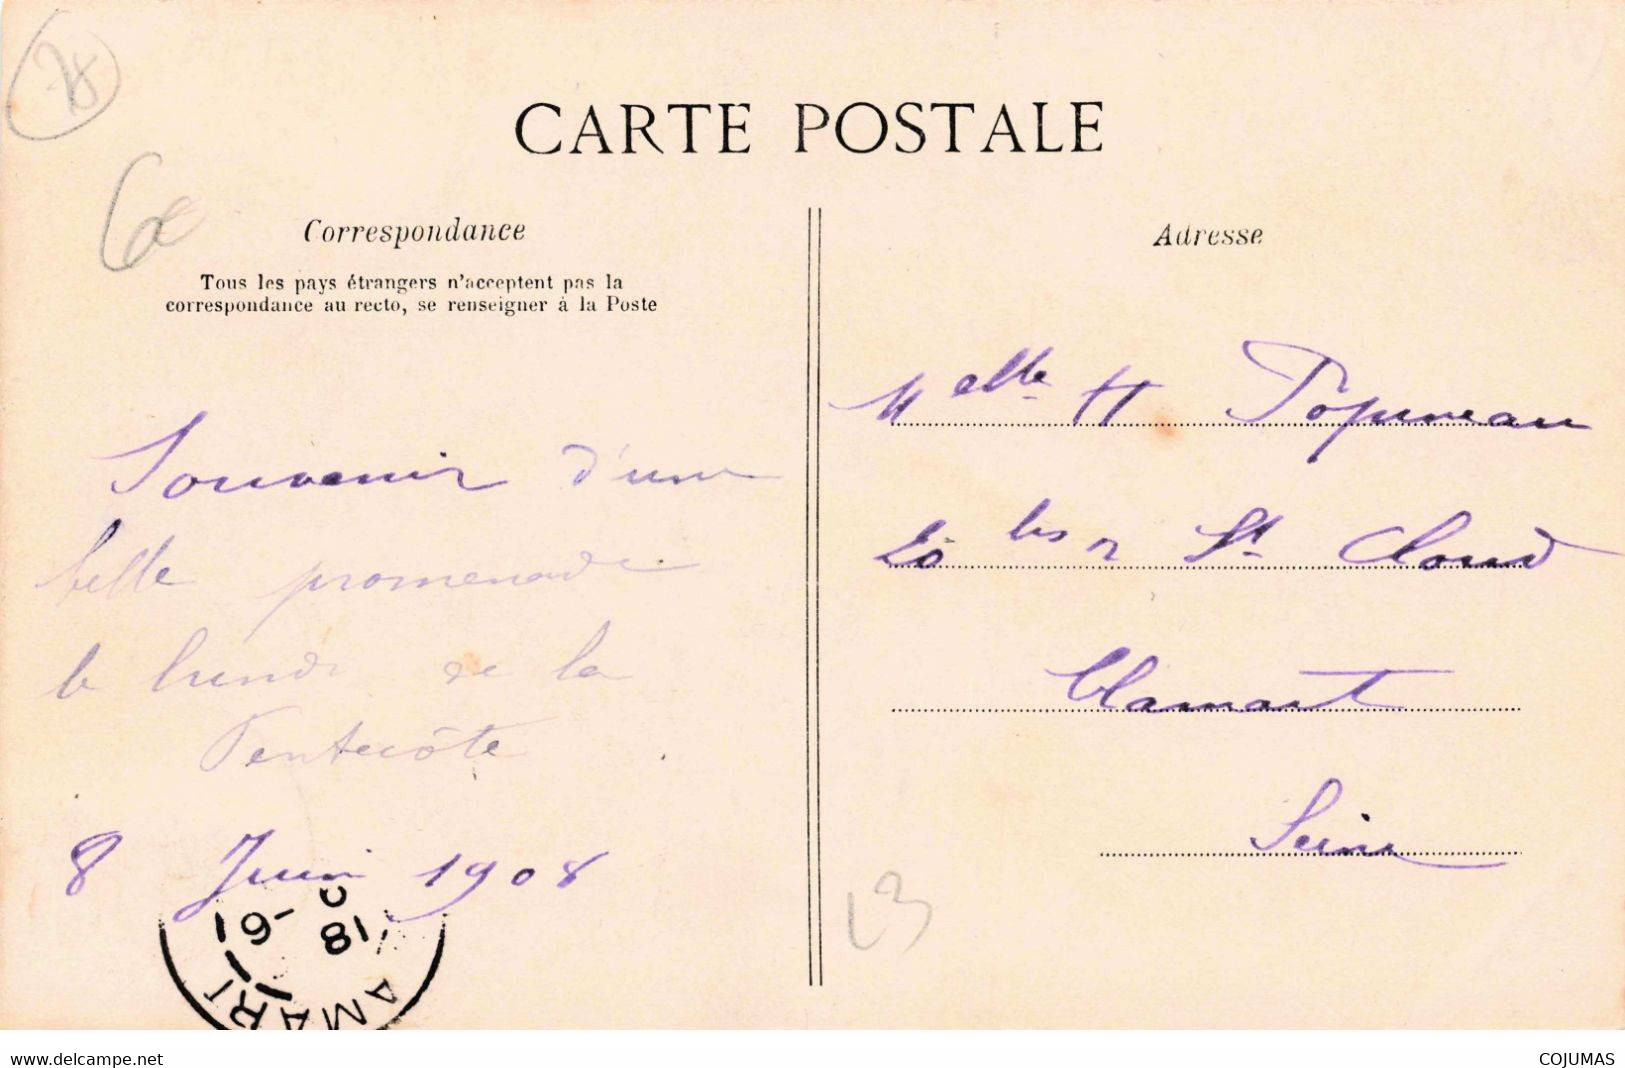 78
6e
CARTE POSTALE
Correspondance
Tous les pays étrangers n'acceptent pas la
correspondance au recto, se renseigner à la Poste
Souvenir d'une
belle promenade
le lundi de la
Pentecôte
8 Juin 1908
Adresse
Melle H Popineau
20 bis r St Cloud
Clamart
Seine
13
delcampe.net
COJUMAS